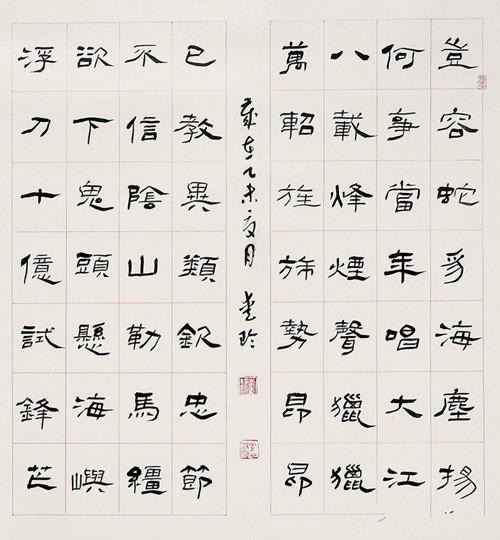 豈容蛇豸海塵揚
何事當年唱大江
八載烽煙聲獵獵
萬軺旌旆勢昂昂
歲在乙未夏月
已教異類欽忠節
不信陰山勒馬繮
欲下鬼頭懸海嶼
浮刀十億試鋒芒